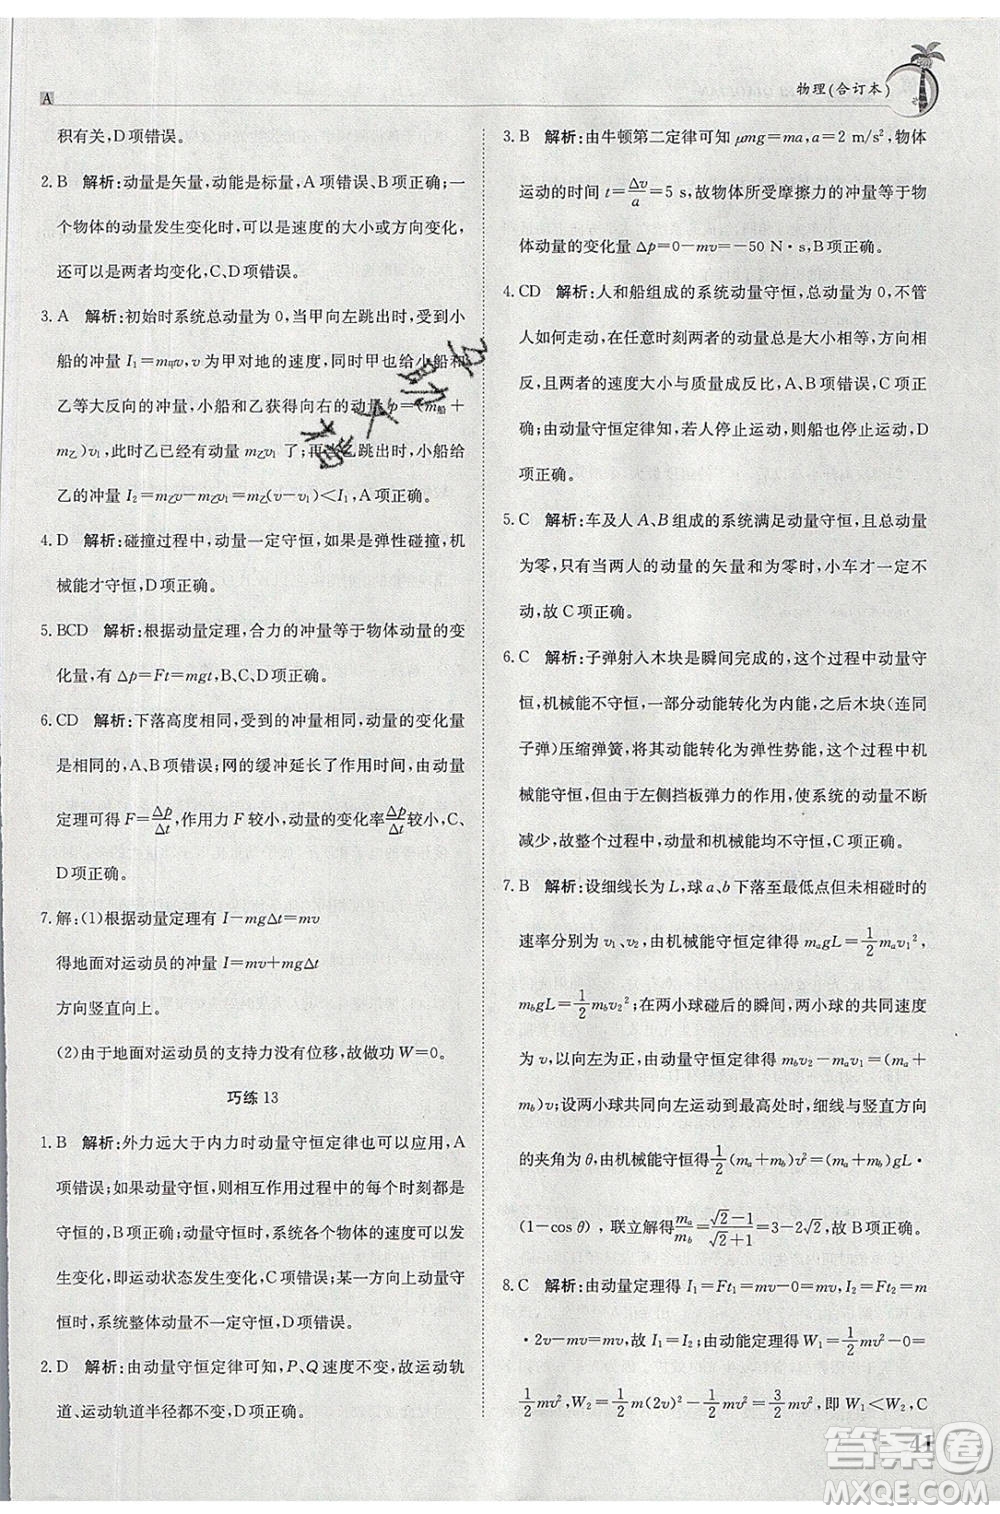 物理(合订本)
A
积有关,D项错误。
2. B 解析:动量是矢量,动能是标量,A项错误、B项正确;一
个物体的动量发生变化时,可以是速度的大小或方向变化,
还可以是两者均变化,C、D项错误。
3. A 解析:初始时系统总动量为0,当甲向左跳出时,受到小
船的冲量 I₁=m甲v,v为甲对地的速度,同时甲也给小船和
乙等大反向的冲量,小船和乙获得向右的动量 p=(m船+
m乙)v₁,此时乙已经有动量 m乙v₁了;再当乙跳出时,小船给
乙的冲量 I₂=m乙v-m乙v₁=m乙(v-v₁)<I₁,A项正确。
4. D 解析:碰撞过程中,动量一定守恒,如果是弹性碰撞,机
械能才守恒,D项正确。
5. BCD 解析:根据动量定理,合力的冲量等于物体动量的变
化量,有 Δp=Ft=mgt,B、C、D项正确。
6. CD 解析:下落高度相同,受到的冲量相同,动量的变化量
是相同的,A、B项错误;网的缓冲延长了作用时间,由动量
定理可得 F=Δp/Δt,作用力 F 较小,动量的变化率Δp/Δt较小,C、
D项正确。
7. 解:(1)根据动量定理有 I-mgΔt=mv
得地面对运动员的冲量 I=mv+mgΔt
方向竖直向上。
(2)由于地面对运动员的支持力没有位移,故做功 W=0。
巧练 13
1. B 解析:外力远大于内力时动量守恒定律也可以应用,A
项错误;如果动量守恒,则相互作用过程中的每个时刻都是
守恒的,B项正确;动量守恒时,系统各个物体的速度可以发
生变化,即运动状态发生变化,C项错误;某一方向上动量守
恒时,系统整体动量不一定守恒,D项错误。
2. D 解析:由动量守恒定律可知,P、Q速度不变,故运动轨
道、运动轨道半径都不变,D项正确。
3. B 解析:由牛顿第二定律可知 μmg=ma,a=2 m/s²,物体
运动的时间 t=Δv/a=5 s,故物体所受摩擦力的冲量等于物
体动量的变化量 Δp=0-mv=-50 N·s,B项正确。
4. CD 解析:人和船组成的系统动量守恒,总动量为0,不管
人如何走动,在任意时刻两者的动量大小相等,方向相
反,且两者的速度大小与质量成反比,A、B项错误,C项正
确;由动量守恒定律知,若人停止运动,则船也停止运动,D
项正确。
5. C 解析:车及人A、B组成的系统满足动量守恒,总动量为
零,只有当两人动量的矢量和为零时,小车才一定不
动,故C项正确。
6. C 解析:子弹射入木块是瞬间完成的,这个过程中动量守
恒,机械能不守恒,一部分动能转化为内能,之后木块(连同
子弹)压缩弹簧,将其动能转化为弹性势能,这个过程中机
械能守恒,但由于左侧挡板弹力的作用,使系统的动量不断
减少,故整个过程中,动量和机械能均不守恒,C项正确。
7. B 解析:设细线长为L,球a、b下落至最低点但未相碰时的
速率分别为v₁、v₂,由机械能守恒定律得 mₐgL=1/2mₐv₁²,
m_bgL=1/2m_bv₂²;在两小球碰后的瞬间,两小球的共同速度
为v,以向左为正,由动量守恒定律得 m_bv₂-mₐv₁=(mₐ+
m_b)v;设两小球共同向左运动到最高处时,细线与竖直方向
的夹角为θ,由机械能守恒得1/2(mₐ+m_b)v²=(mₐ+m_b)gL·
(1-cosθ),联立解得mₐ/m_b=(√2-1)/(√2+1)=3-2√2,故B项正确。
8. C 解析:由动量定理得 I₁=Ft₁=mv-0=mv,I₂=Ft₂=m
·2v-mv=mv,故 I₁=I₂;由动能定理得 W₁=1/2mv²-0=
1/2mv²,W₂=1/2m(2v)²-1/2mv²=3/2mv²,即 W₁<W₂,C
41
答案圈
MXQE.COM